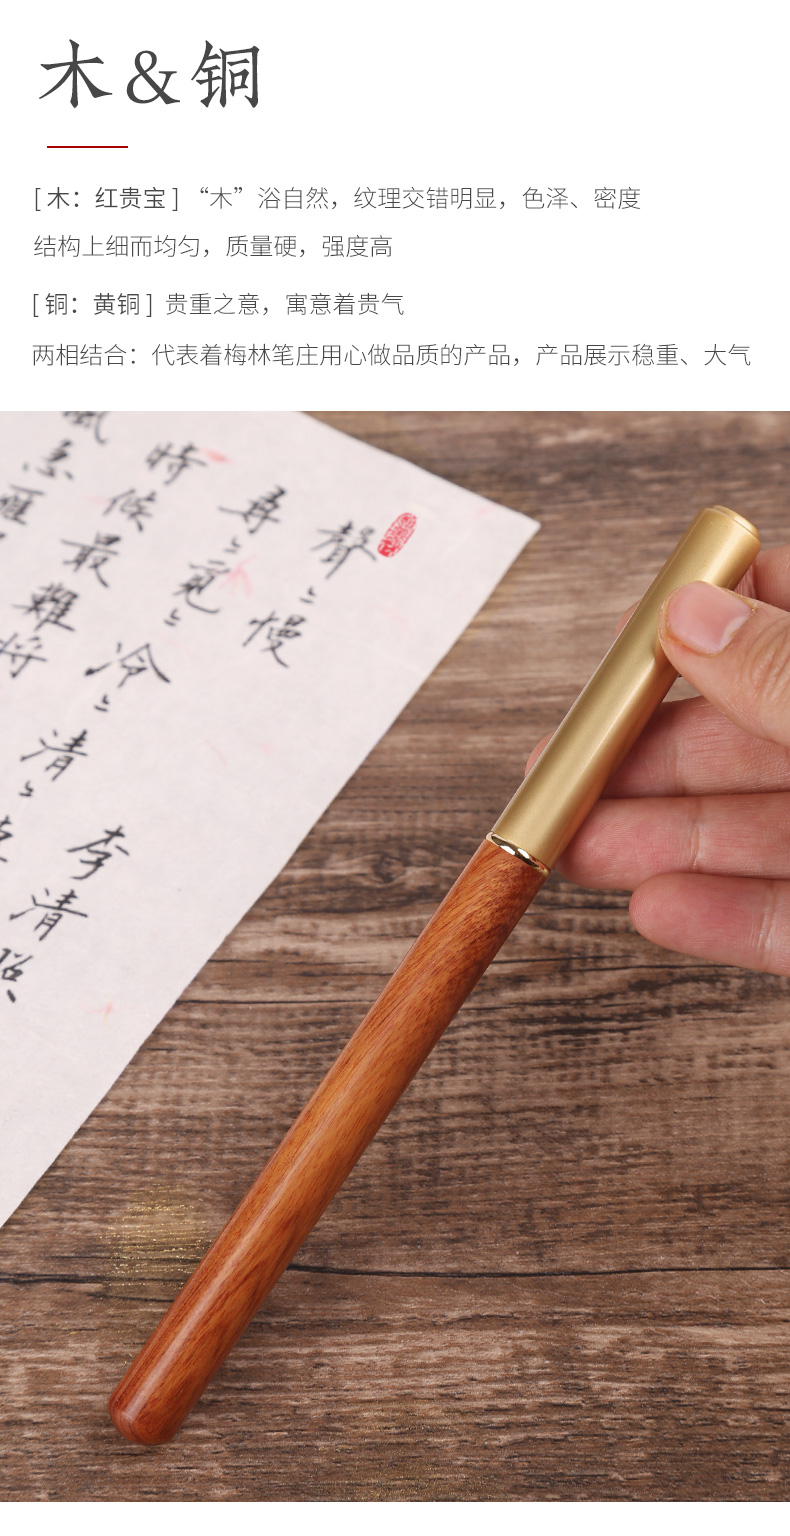 木&铜
[ 木：红贵宝 ] “木”浴自然，纹理交错明显，色泽、密度
结构上细而均匀，质量硬，强度高
[ 铜：黄铜 ] 贵重之意，寓意着贵气
两相结合：代表着梅林笔庄用心做品质的产品，产品展示稳重、大气
聲〻慢 李清照
尋〻覓〻冷〻清〻
時候最難將
風急雁